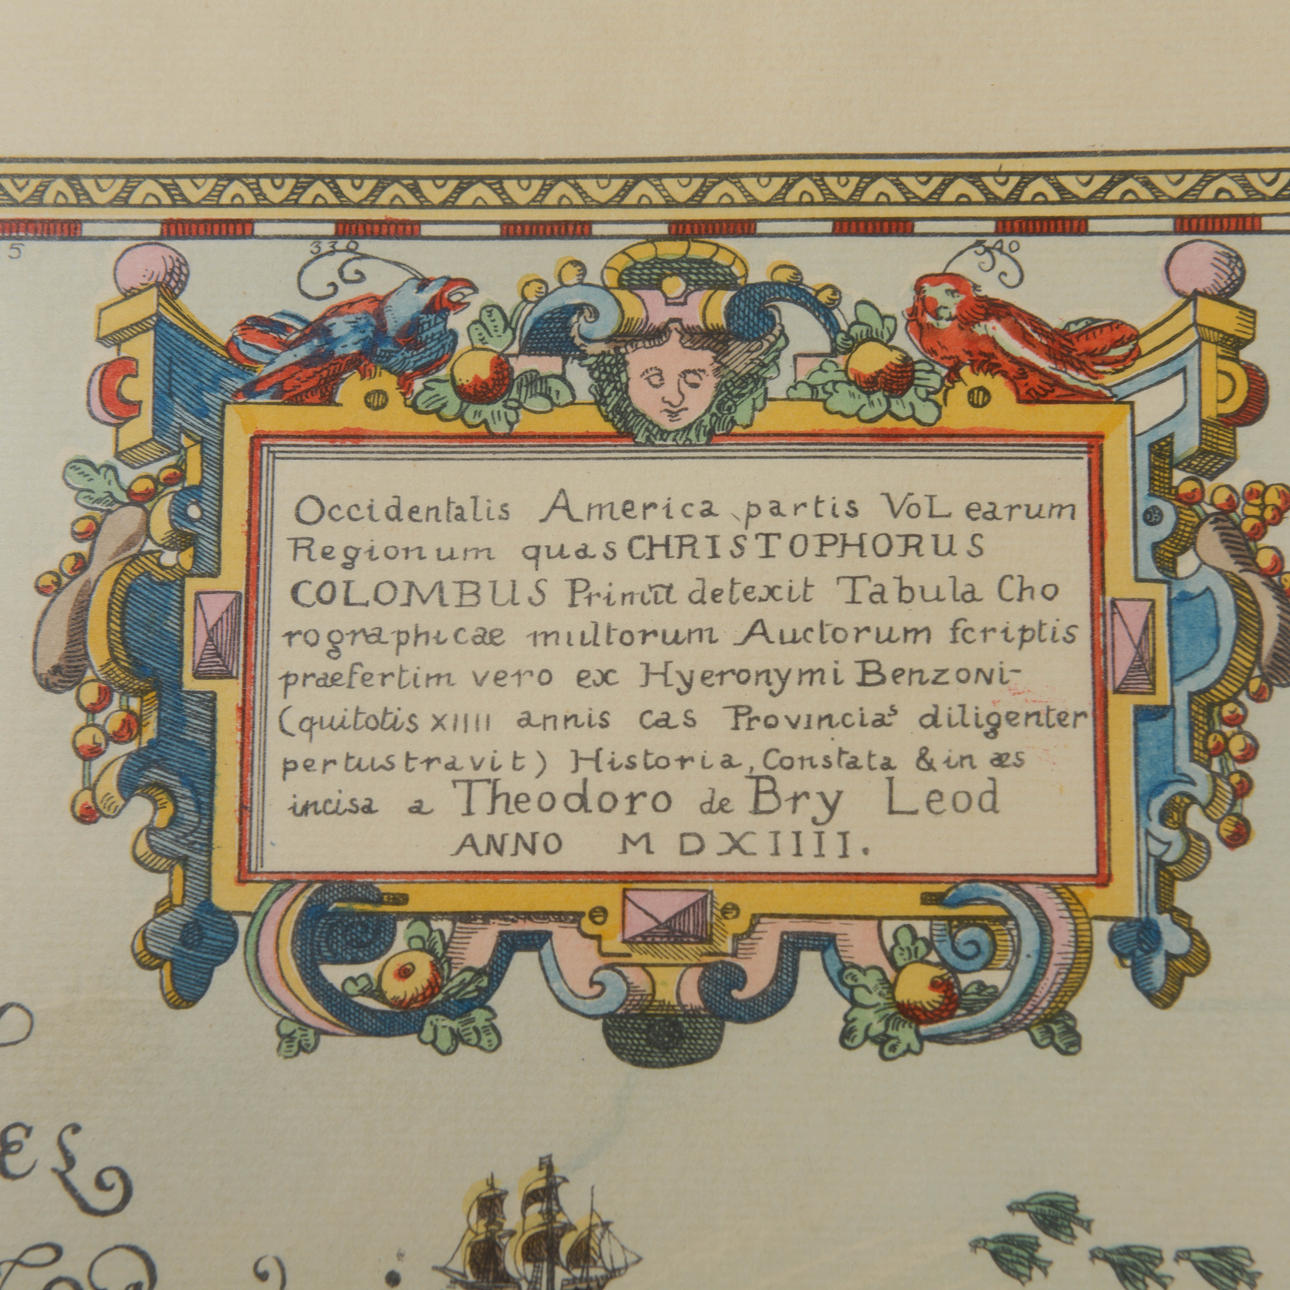 5 330 340
Occidentalis America partis VoL earum
Regionum quas CHRISTOPHORUS
COLOMBUS detexit Tabula Cho
rographicae multorum Auctorum scriptis
praefertim vero ex Hyeronymi Benzoni-
(quitotis XIIII annis cas Provincias diligenter
pertustravit) Historia, Constata & in æs
incisa a Theodoro de Bry Leod
ANNO M D X I I I I .
EL